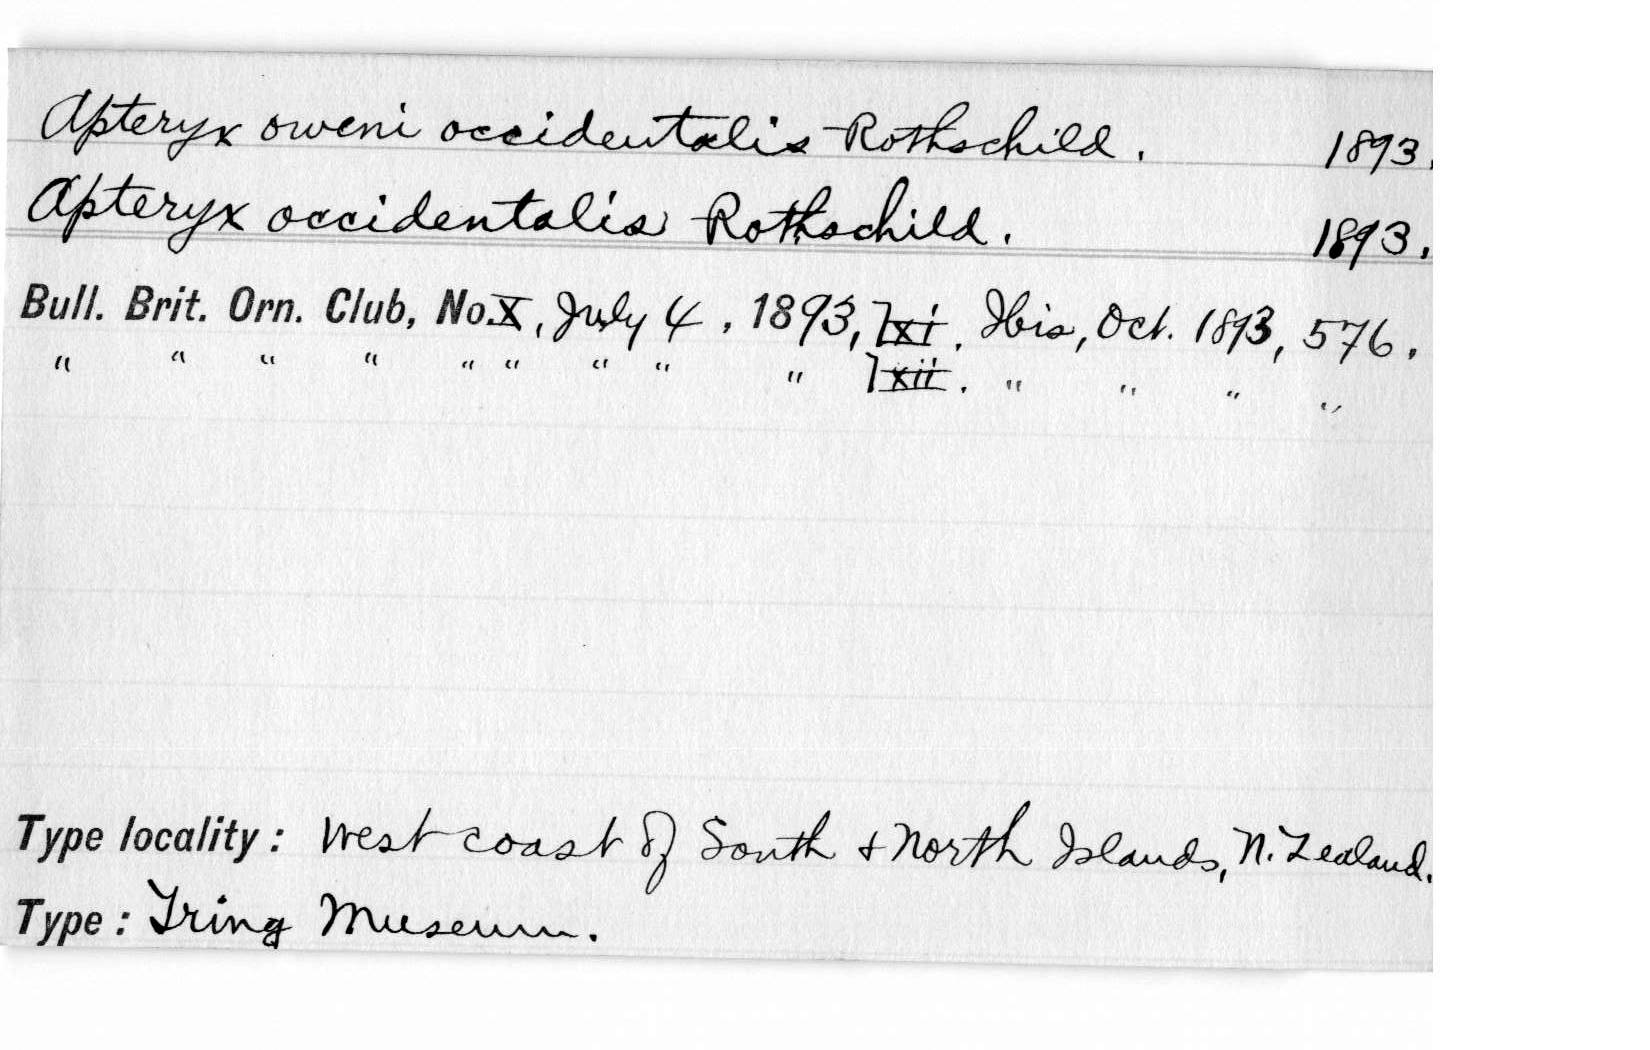 Apteryx oweni occidentalis Rothschild. 1893.
Apteryx occidentalis Rothschild. 1893.
Bull. Brit. Orn. Club, No. X, July 4, 1893, lxi. Ibis, Oct. 1893, 576.
" " " " " " " " " lxii. " " " "
Type locality: West coast of South & North Islands, N. Zealand.
Type: Tring Museum.